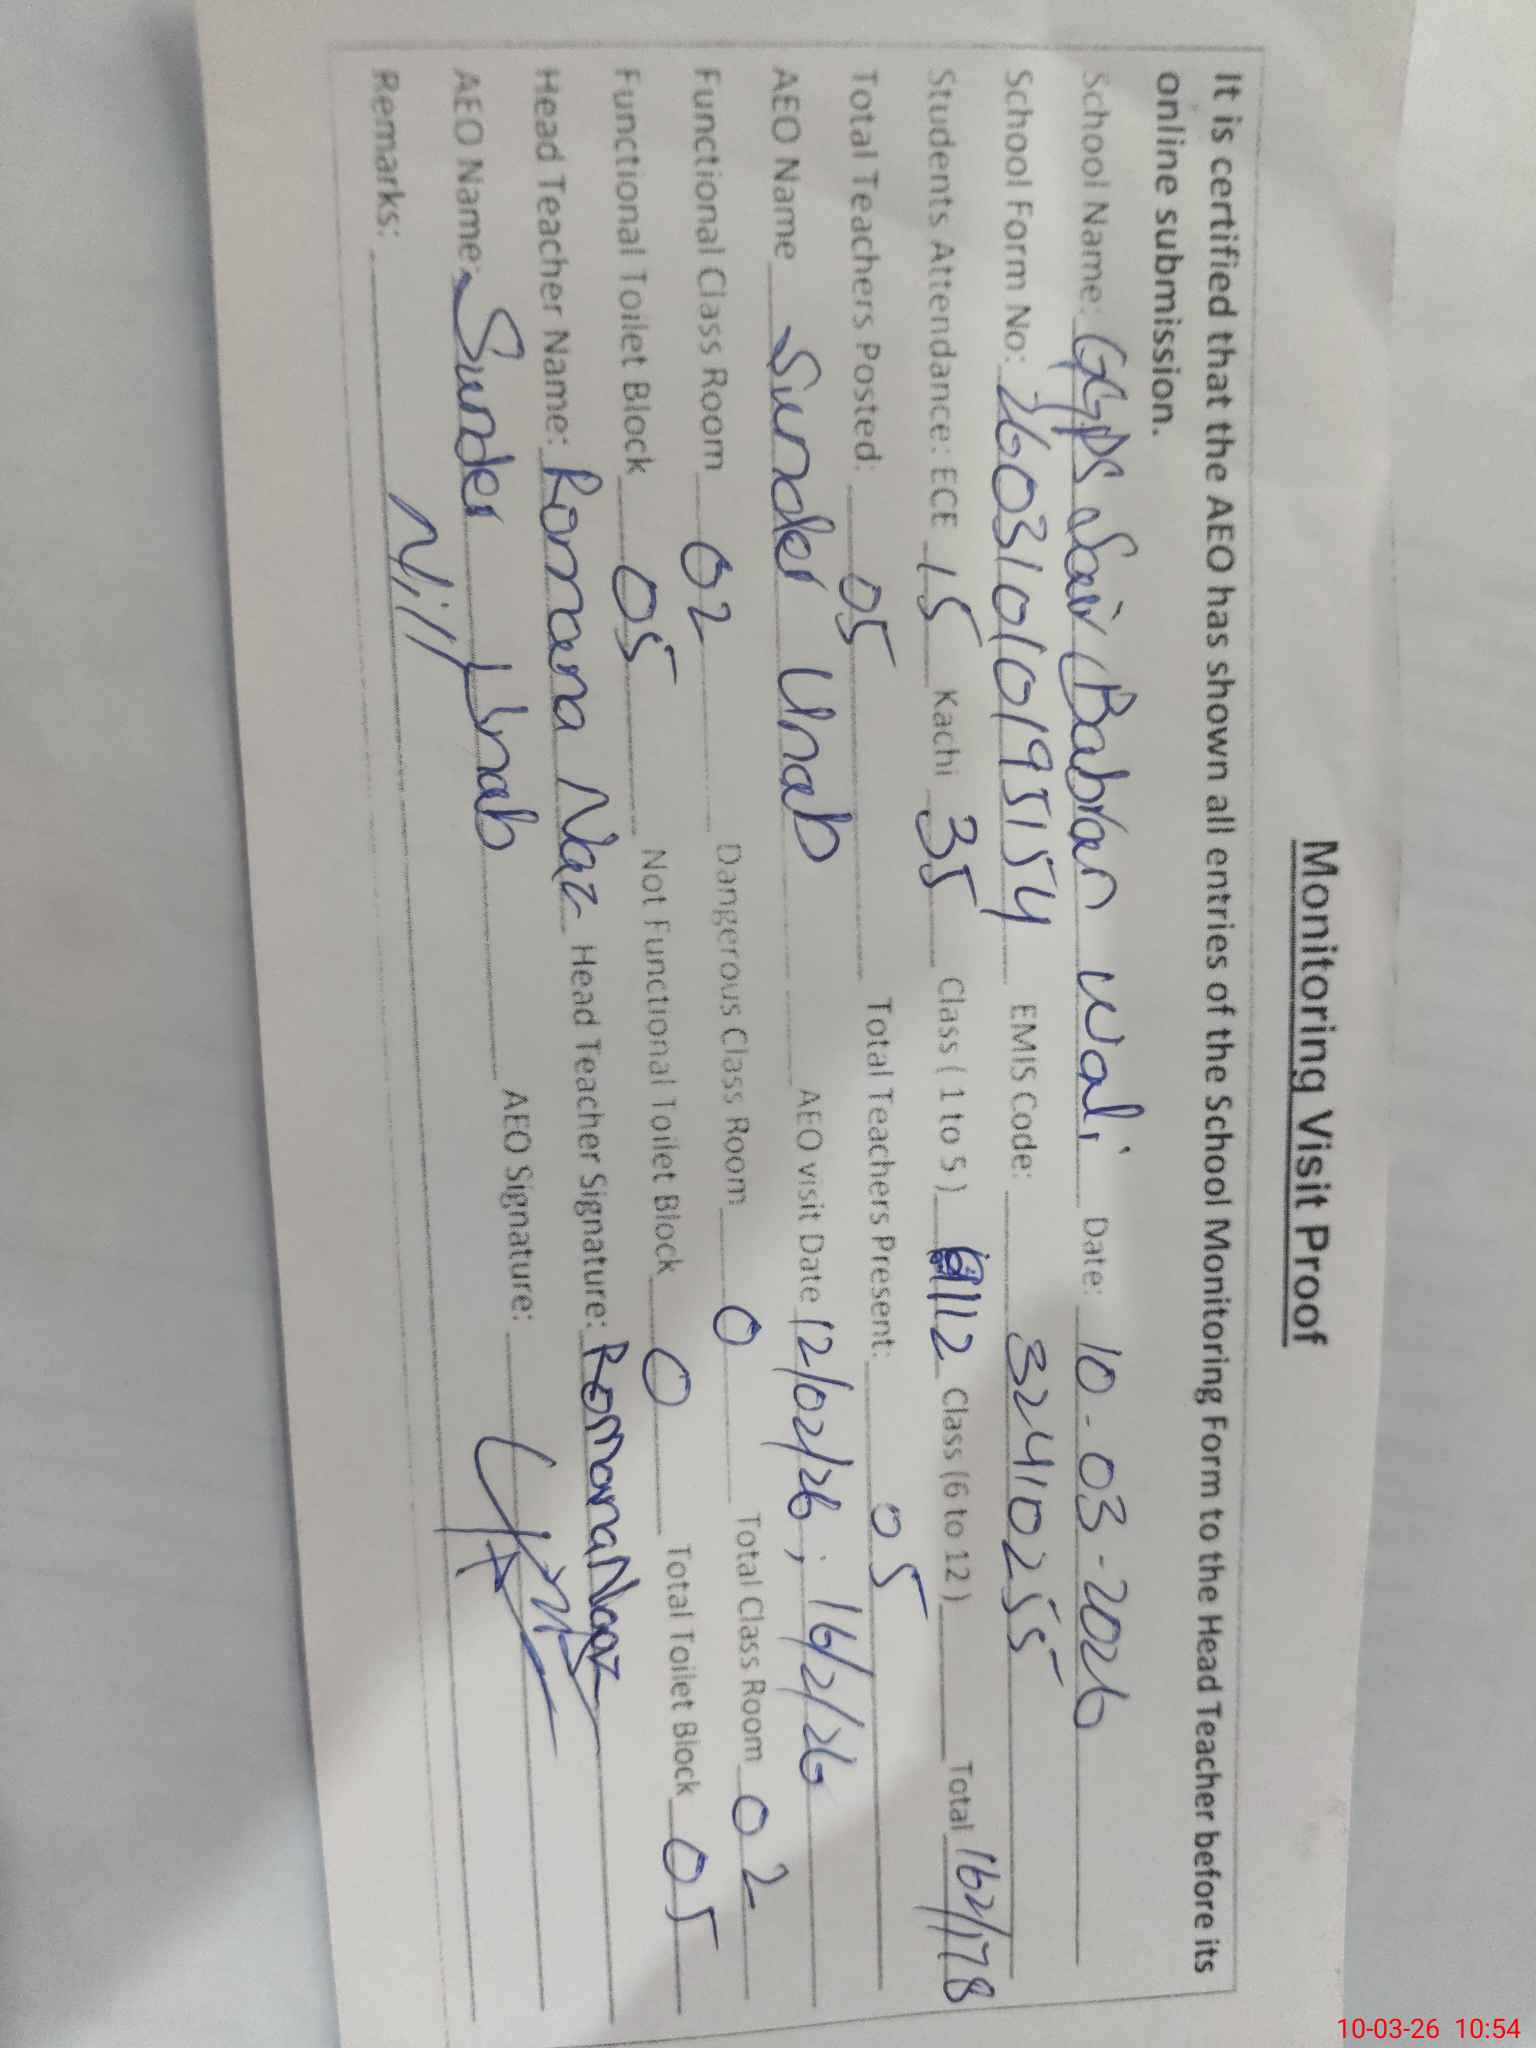 Monitoring Visit Proof
It is certified that the AEO has shown all entries of the School Monitoring Form to the Head Teacher before its
online submission.
School Name: GGPS Sair Babran Wali Date: 10-03-2026
School Form No: 26031010195154 EMIS Code: 32410255
Students Attendance: ECE 15 Kachi 35 Class ( 1 to 5 ) 112 Class (6 to 12 ) Total 162/178
Total Teachers Posted: 05 Total Teachers Present: 05
AEO Name Sunder Unab AEO visit Date 12/02/26, 16/2/26
Functional Class Room 02 Dangerous Class Room 0 Total Class Room 02
Functional Toilet Block 05 Not Functional Toilet Block 0 Total Toilet Block 05
Head Teacher Name: Romana Naz Head Teacher Signature: Romana Naaz
AEO Name: Sunder Unab AEO Signature:
Remarks: Nill
10-03-26 10:54